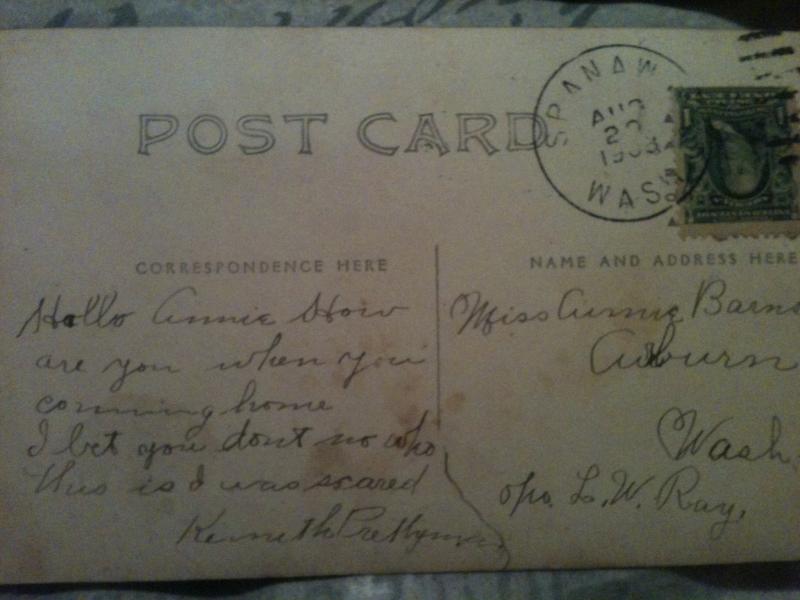 POST CARD
SPANAW
AUG
20
190
WASH
CORRESPONDENCE HERE
NAME AND ADDRESS HERE
Hollo Annie How
are you when you
comming home
I bet you dont no who
this is I was scared
Kenneth Prettyman
Miss Annie Barns
Auburn
Wash
c/o L. W. Ray.